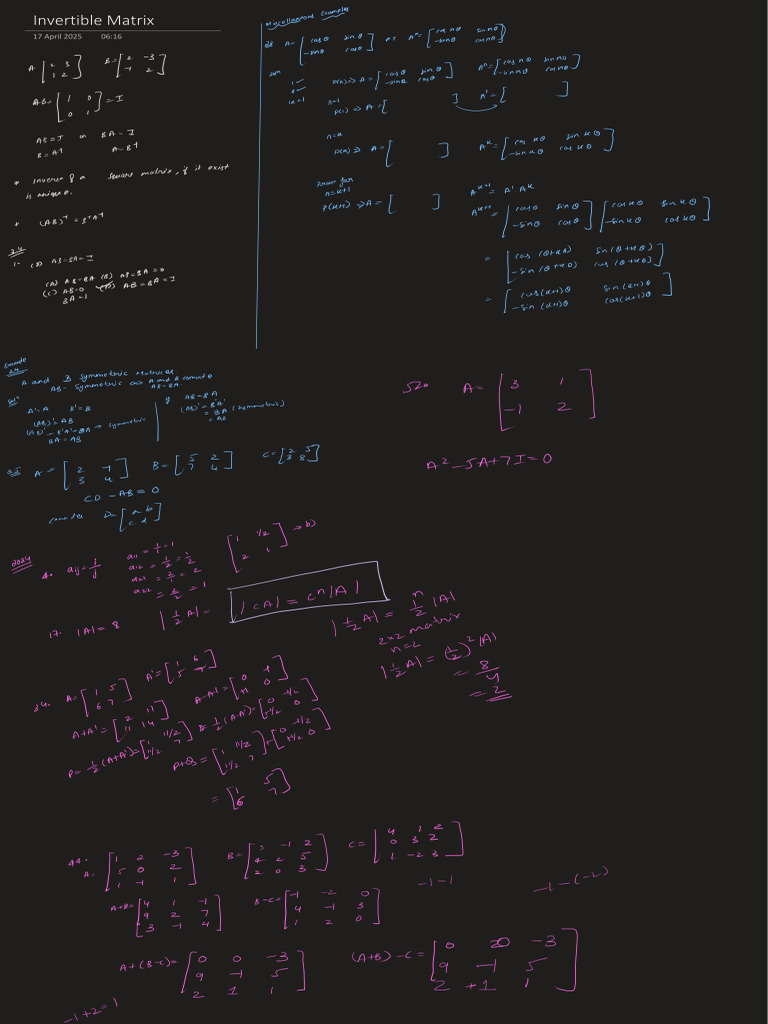 Invertible Matrix
17 April 2025 06:16
A = [2 3
1 2] B = [2 -3
-1 2]
AB = [1 0
0 1] = I
AB = I or BA = I
B = A⁻¹ A = B⁻¹
* Inverse of a square matrix, if it exist
is unique.
* (AB)⁻¹ = B⁻¹A⁻¹
3.4
1. (D) AB = BA = I
(A) AB = BA (B) AB = BA = 0
(C) AB = 0 (D) AB = BA = I
BA = I
Miscellaneous Examples
A = [cosθ sinθ
-sinθ cosθ] Aⁿ = [cos nθ sin nθ
-sin nθ cos nθ]
P(n) ⇒ A = [cosθ sinθ
-sinθ cosθ] Aⁿ = [cos nθ sin nθ
-sin nθ cos nθ]
n=1
P(1) ⇒ A = [ ] A¹ = [ ]
n=k
P(k) ⇒ A = [ ] Aᵏ = [cos kθ sin kθ
-sin kθ cos kθ]
n=k+1
P(k+1) ⇒ A = [ ] Aᵏ⁺¹ = A¹.Aᵏ
Aᵏ⁺¹ = [cosθ sinθ
-sinθ cosθ] [cos kθ sin kθ
-sin kθ cos kθ]
= [cos (θ+kθ) sin (θ+kθ)
-sin (θ+kθ) cos (θ+kθ)]
= [cos(k+1)θ sin(k+1)θ
-sin(k+1)θ cos(k+1)θ]
Example
A and B symmetric matrices
AB - symmetric ⇔ A and B commute
AB = BA
Solⁿ
A' = A B' = B
(AB)' = AB
(AB)' = B'A' = BA → symmetric
BA = AB
if AB = BA
(AB)' = B'A'
= BA (symmetric)
= AB
A = [2 -1
3 4] B = [5 2
7 4] C = [2 5
3 8]
CD - AB = 0
consider D = [a b
c d]
520. A = [3 1
-1 2]
A² - 5A + 7I = 0
2024
4. aij = i/j
a11 = 1/1 = 1
a12 = 1/2 = 1/2
a21 = 2/1 = 2
a22 = 2/2 = 1
[1 1/2
2 1] → b)
17. |A| = 8 |1/2 A| =
|cA| = cⁿ|A|
|1/2 A| = 1/2ⁿ |A|
2×2 matrix
n = 2
|1/2 A| = (1/2)² |A|
= 8/4
= 2
34. A = [1 5
6 7] A' = [1 6
5 7]
A+A' = [2 11
11 14] A-A' = [0 -1
+1 0]
P = 1/2 (A+A') = [1 11/2
11/2 7] Q = 1/2 (A-A') = [0 -1/2
+1/2 0]
P+Q = [1 11/2
11/2 7] + [0 -1/2
+1/2 0]
= [1 5
6 7]
44.
A = [1 2 -3
5 0 2
1 -1 1] B = [3 -1 2
4 2 5
2 0 3] C = [4 1 2
0 3 2
1 -2 3]
A+B = [4 1 -1
9 2 7
3 -1 4] B-C = [-1 -2 0
4 -1 3
1 2 0]
-1-1
-1-(-2)
A+(B-C) = [0 0 -3
9 -1 5
2 1 1]
(A+B)-C = [0 0 -3
9 -1 5
2 +1 1]
-1+2=1